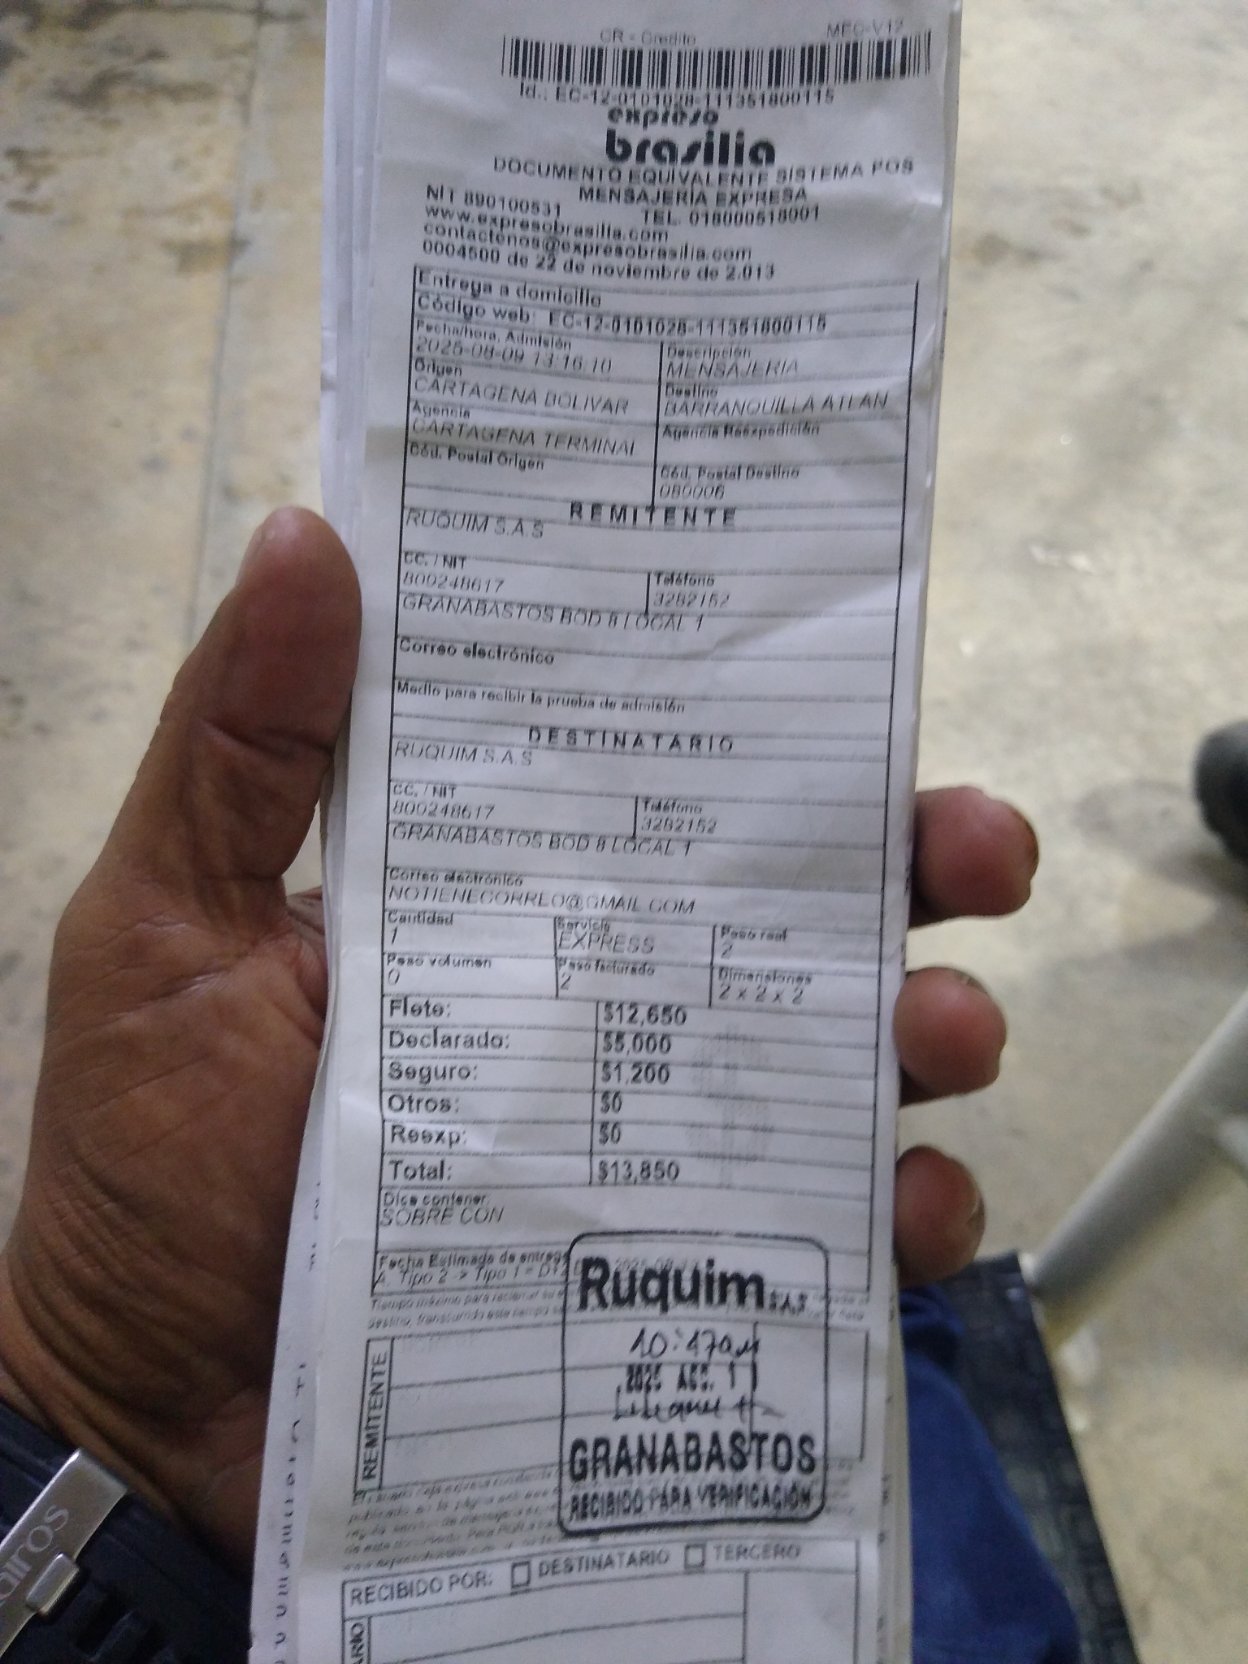 CR - Credito MEC-V12
Id.: EC-12-0101028-111351800115
expreso
brasilia
DOCUMENTO EQUIVALENTE SISTEMA POS
MENSAJERÍA EXPRESA
NIT 890100531 TEL. 018000518001
www.expresobrasilia.com
contactenos@expresobrasilia.com
0004500 de 22 de noviembre de 2.013
Entrega a domicilio
Código web: EC-12-0101028-111351800115
Fecha/hora, Admisión Descripción
2025-08-09 13:16:10 MENSAJERIA
Origen Destino
CARTAGENA BOLIVAR BARRANQUILLA ATLAN
Agencia Agencia Reexpedición
CARTAGENA TERMINAL
Cód. Postal Origen Cód. Postal Destino
080006
REMITENTE
RUQUIM S.A.S
CC. / NIT Teléfono
800248617 3282152
GRANABASTOS BOD 8 LOCAL 1
Correo electrónico
Medio para recibir la prueba de admisión
DESTINATARIO
RUQUIM S.A.S
CC. / NIT Teléfono
800248617 3282152
GRANABASTOS BOD 8 LOCAL 1
Correo electrónico
NOTIENECORREO@GMAIL.COM
Cantidad Servicio Peso real
1 EXPRESS 2
Peso volumen Peso facturado Dimensiones
0 2 2 x 2 x 2
Flete: $12,650
Declarado: $5,000
Seguro: $1,200
Otros: $0
Reexp: $0
Total: $13,850
Dice contener:
SOBRE CON
Fecha Estimada de entrega
A. Tipo 2 -> Tipo 1 =
Ruquim S.A.S
10:47am
2025 AGO. 11
GRANABASTOS
RECIBIDO PARA VERIFICACIÓN
REMITENTE
RECIBIDO POR: DESTINATARIO TERCERO